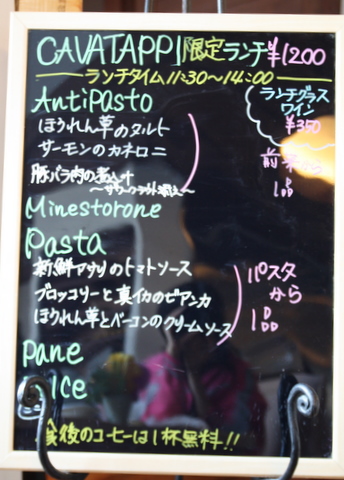 CAVATAPPI 限定ランチ ¥1200
ランチタイム 11:30〜14:00
AntiPasto
ランチグラス
ワイン
¥350
ほうれん草のタルト
サーモンのカネロニ
豚バラ肉の煮込み
〜サワークラウト添え〜
前菜から
1品
Minestorone
Pasta
新鮮アサリのトマトソース
ブロッコリーと真イカのビアンカ
ほうれん草とベーコンのクリームソース
パスタ
から
1品
Pane
ICe
食後のコーヒーは1杯無料!!